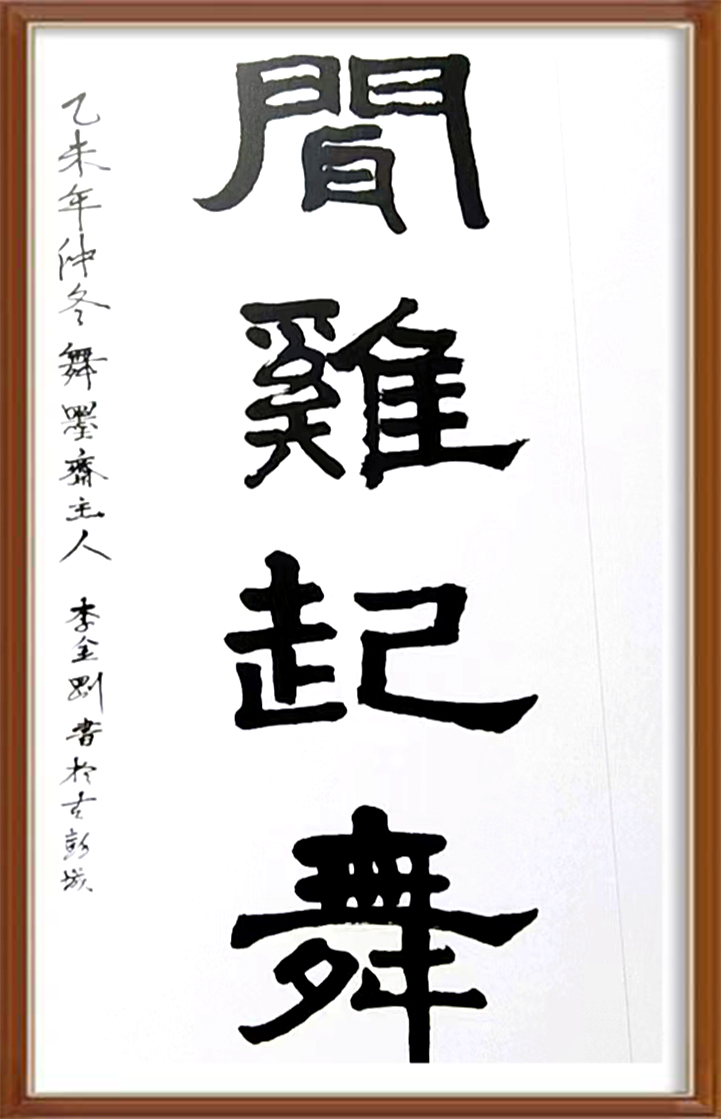 聞雞起舞
乙未年仲冬舞墨齋主人李金剛書於古彭城